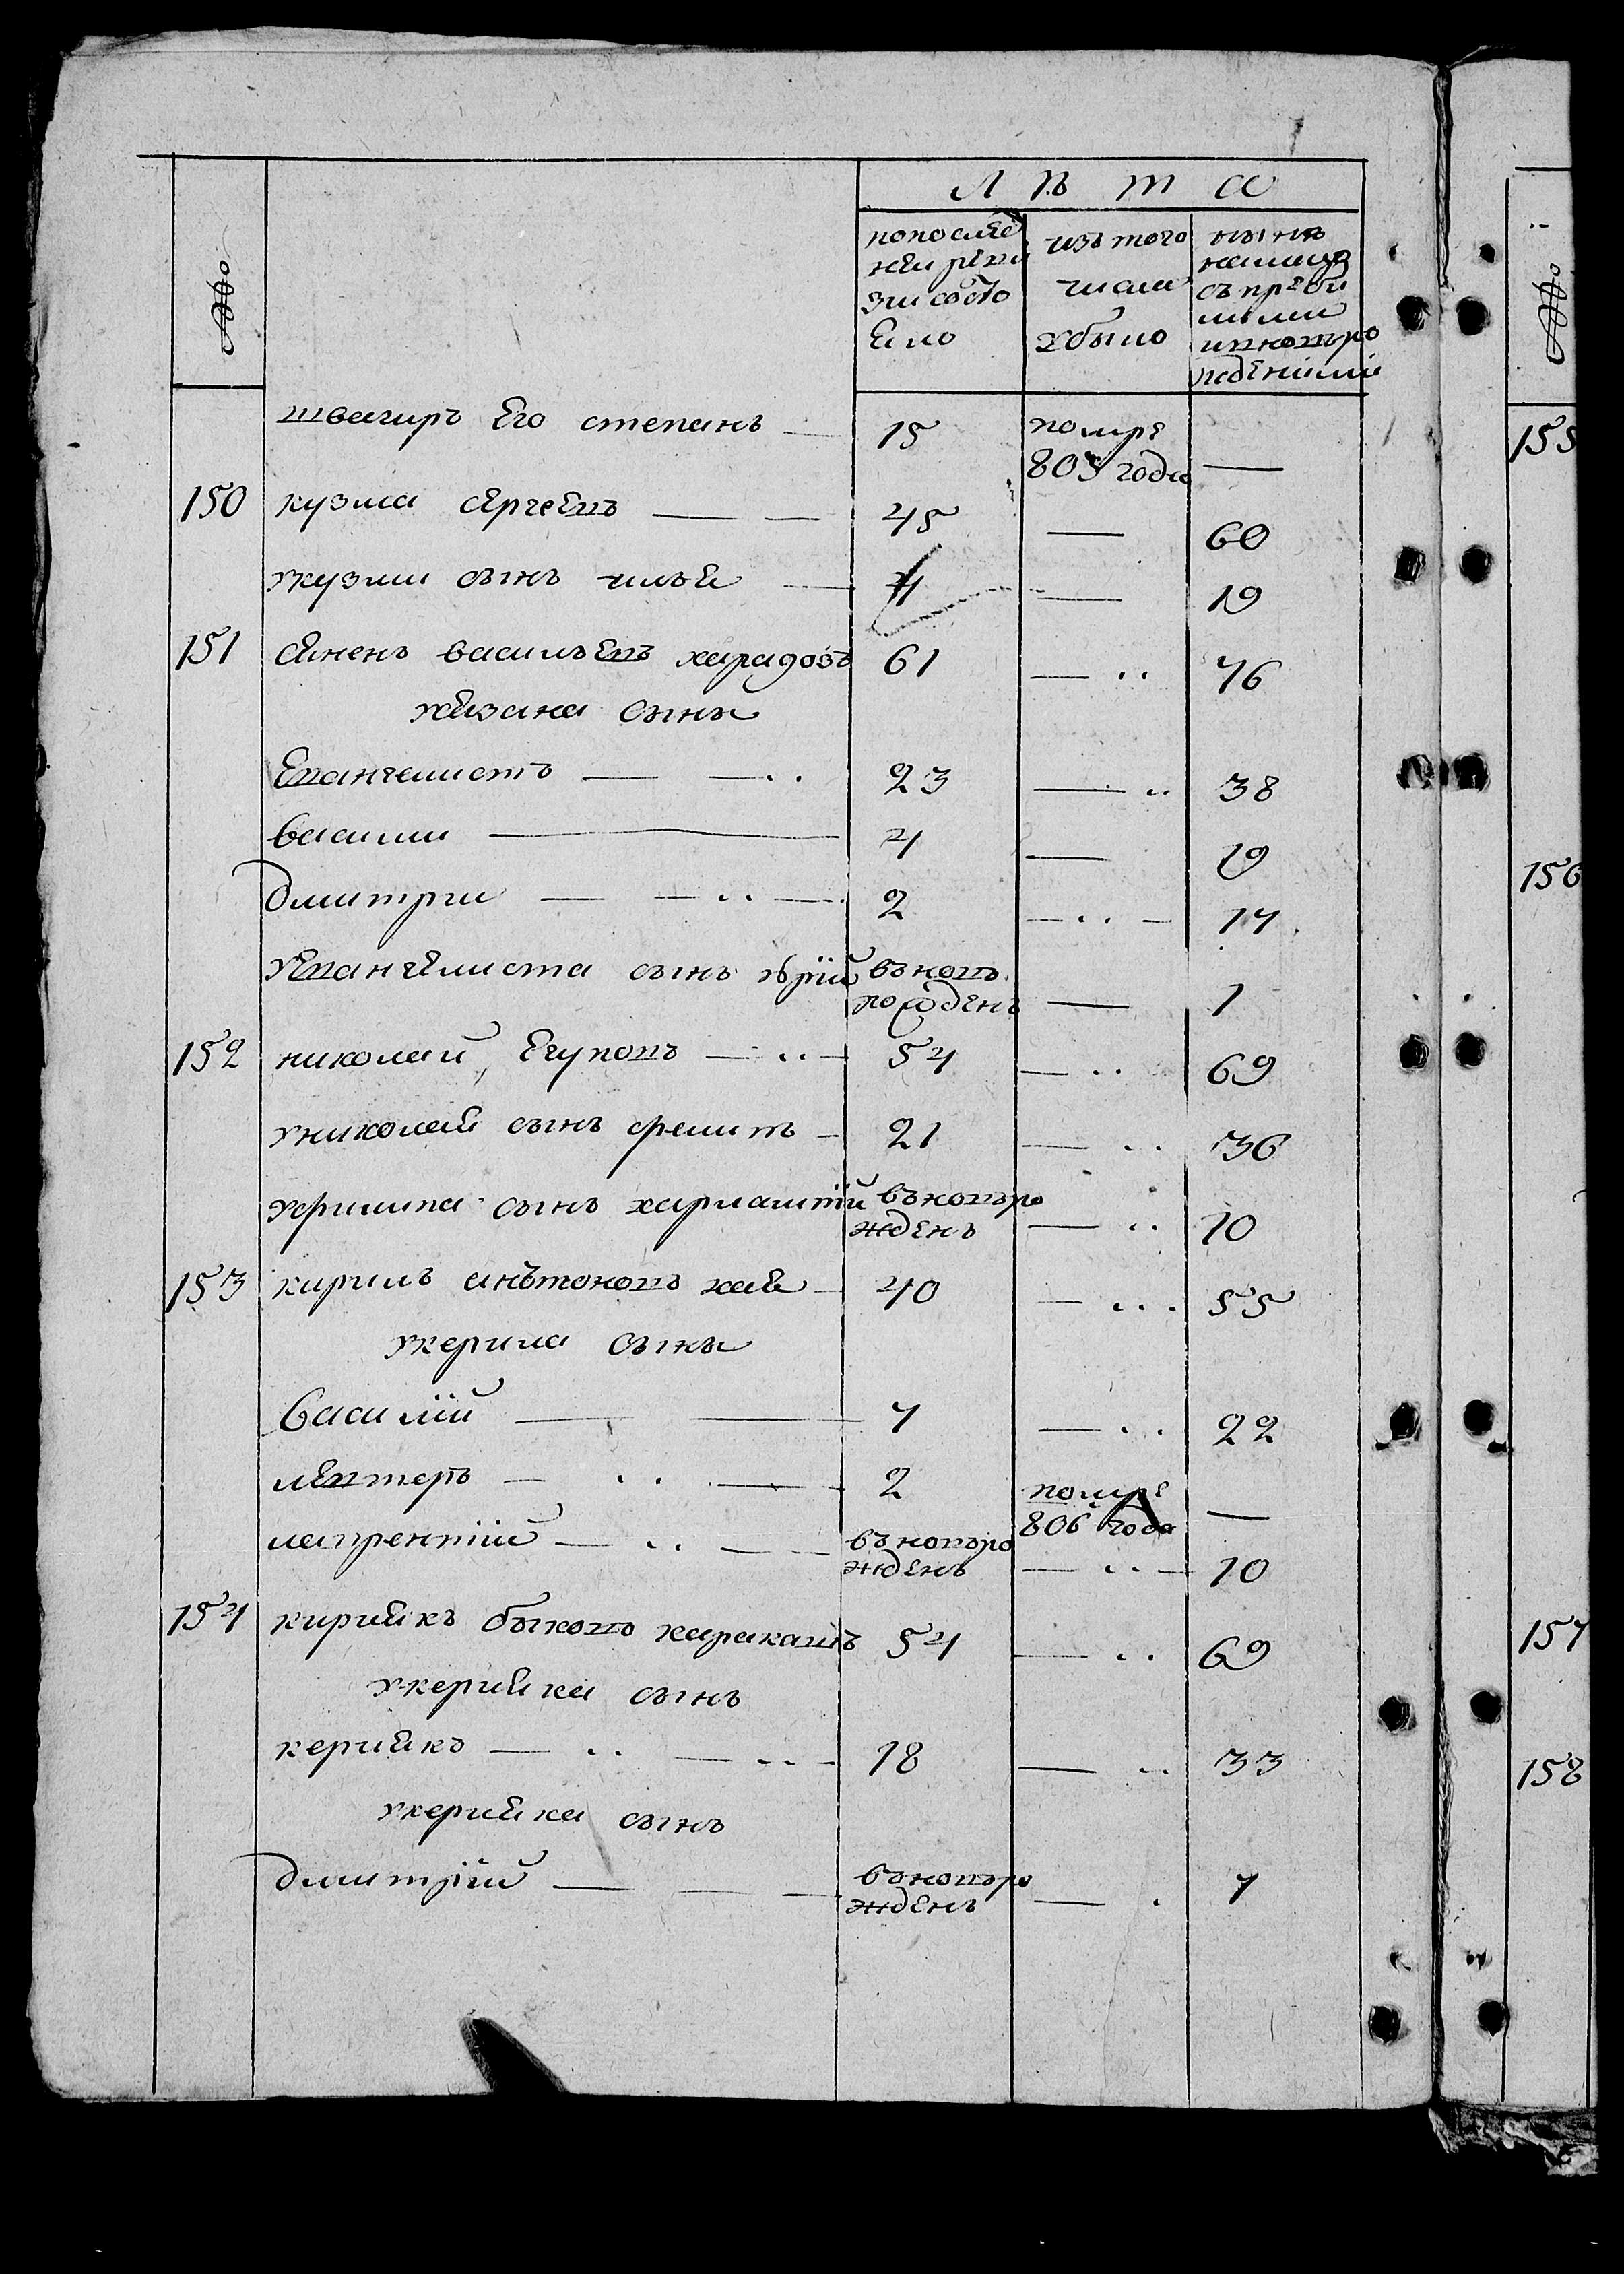 №
Лѣта
попослѣд
неи реви
зии состо
Ело
изъ того
числа
убыло
нынѣ
налицо
съ прибы
лыми
ивновъро
жденіми
швагиръ Его степанъ — 15 помре
803 года —
150 кузма сергеевъ — — 45 — 60
укузми сынъ илья — 4 — 19
151 васильевъ 61 — 76
сыны
Евангелистъ — — 23 — 38
васили — 4 — 19
Дмитри — — — 2 — — 17
уЕвангелиста сынъ юрий въновъ
рожденъ — 1
152 николай Егуповъ — — 54 — 69
униколая сынъ филипъ — 21 — 36
уфилипа сынъ харлампий въновъро
жденъ — 10
153 кирилъ антоновъ хая — 40 — 55
укерила сыны
василий — — 7 — 22
лефтеръ — — 2 помре
806 года —
лаврентий — — — въновъро
жденъ — — 10
154 кирияkъ быковъ каракашъ 54 — 69
укерияка сынъ
керияkъ — — — 18 — 33
укерияка сынъ
дмитрий — — — въновъро
жденъ — 7
№
155
156
157
158